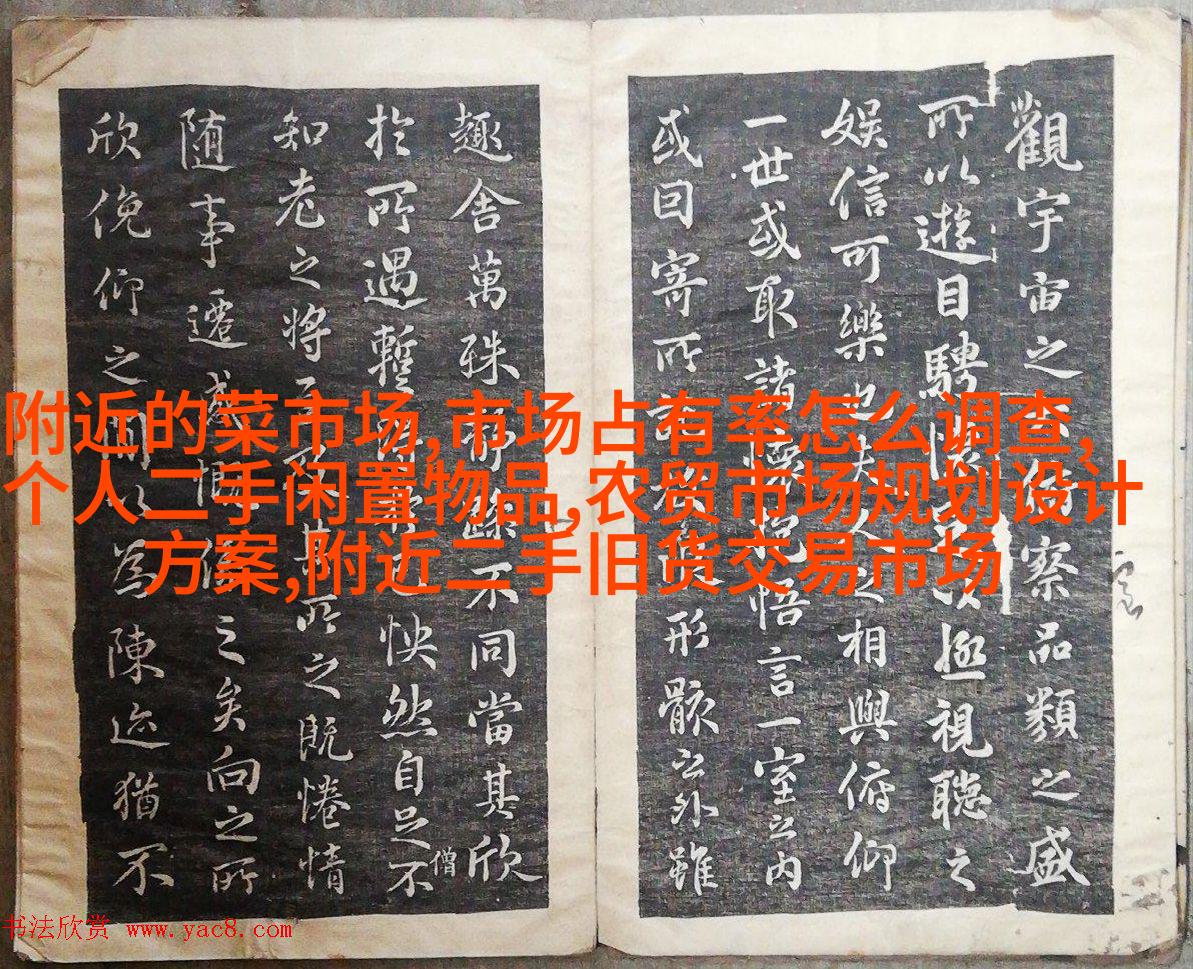 觀宇宙之大俯察品類之盛
所以遊目騁懷足以極視聽之
娛信可樂也夫人之相與俯仰
一世或取諸懷抱悟言一室之內
或因寄所託放浪形骸之外雖
趣舍萬殊靜躁不同當其欣
僧
於所遇暫得於己怏然自足不
知老之將至及其所之既惓情
随事遷感慨係之矣向之所
欣俛仰之閒以為陳迹猶不
附近的菜市场,市场占有率怎么调查,
个人二手闲置物品,农贸市场规划设计
方案,附近二手旧货交易市场
书法欣赏 www.yac8.com